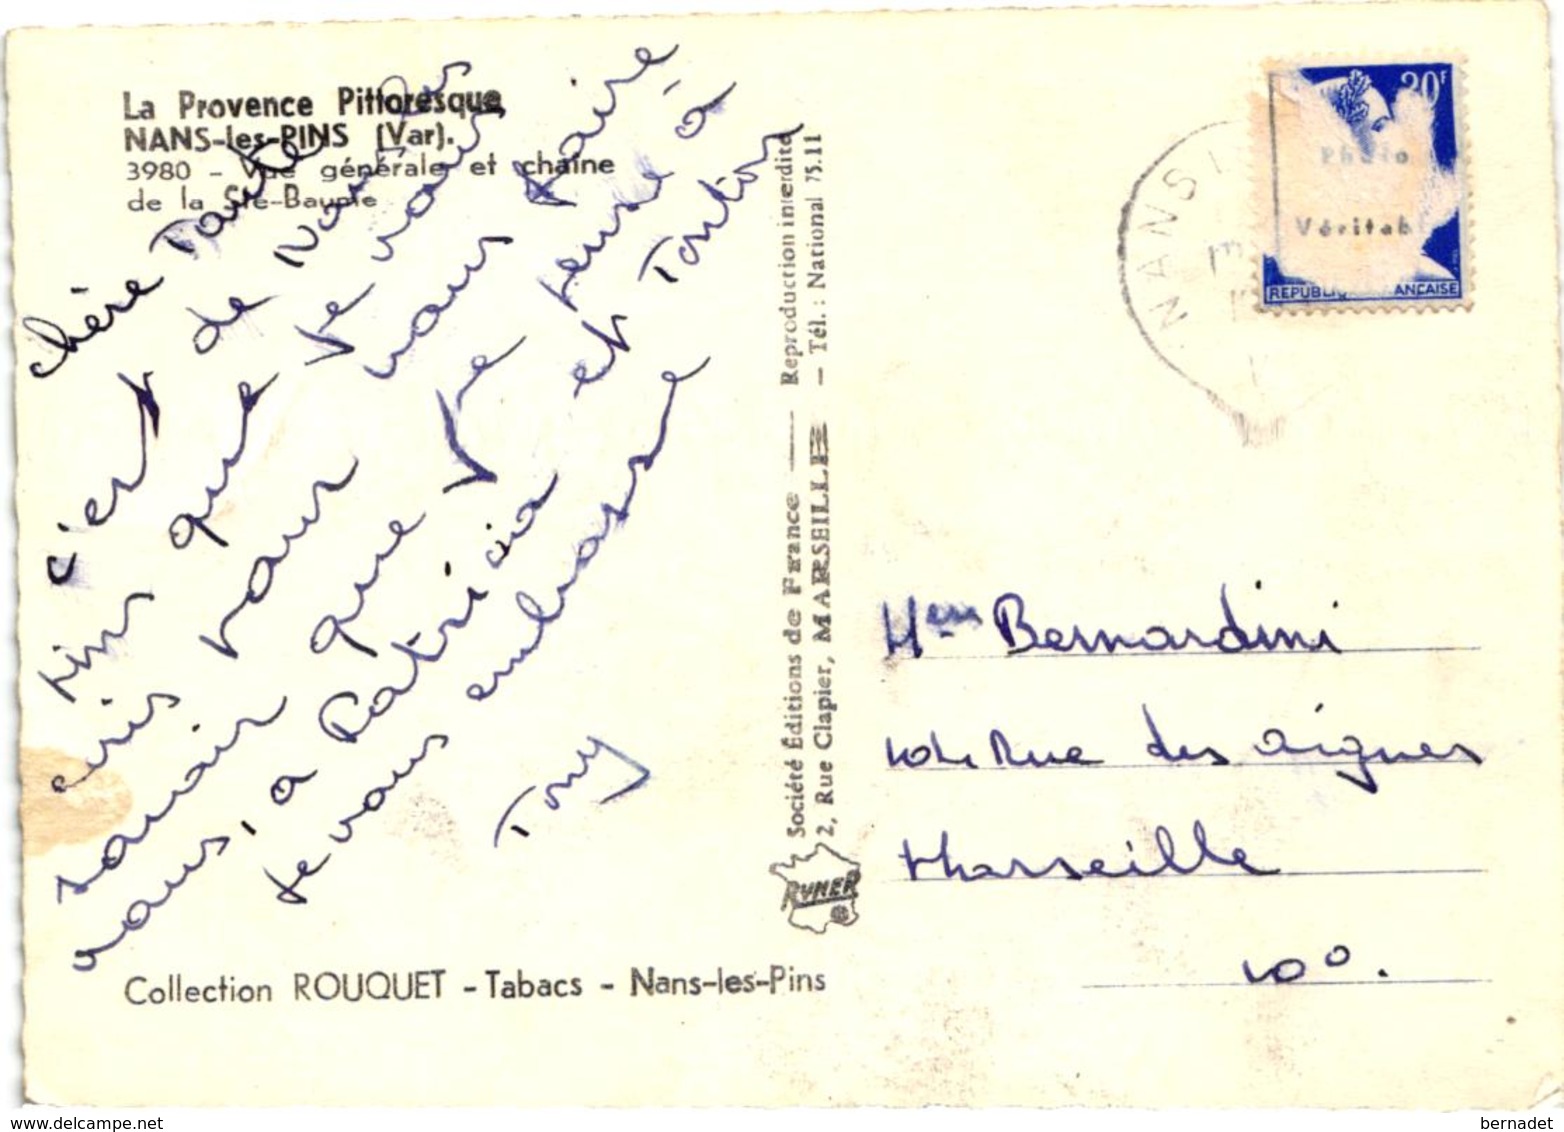 La Provence Pittoresque
NANS-les-PINS (Var).
3980 - Vue générale et chaîne
de la Ste-Baume
chère Tante
c'est de Nans les
pins que je vous
cris pour vous faire
savoir que je pense à
vous, à Patricia et Tonton
je vous embrasse
Tony
Collection ROUQUET - Tabacs - Nans-les-Pins
Société Éditions de France — Reproduction interdite
2, Rue Clapier, MARSEILLE — Tél. : National 75.11
RYNER
NANS
20F
Photo
Véritab
REPUBLI ANCAISE
Mem Bernardini
Rue des aignes
Marseille
10°.
delcampe.net
bernadet